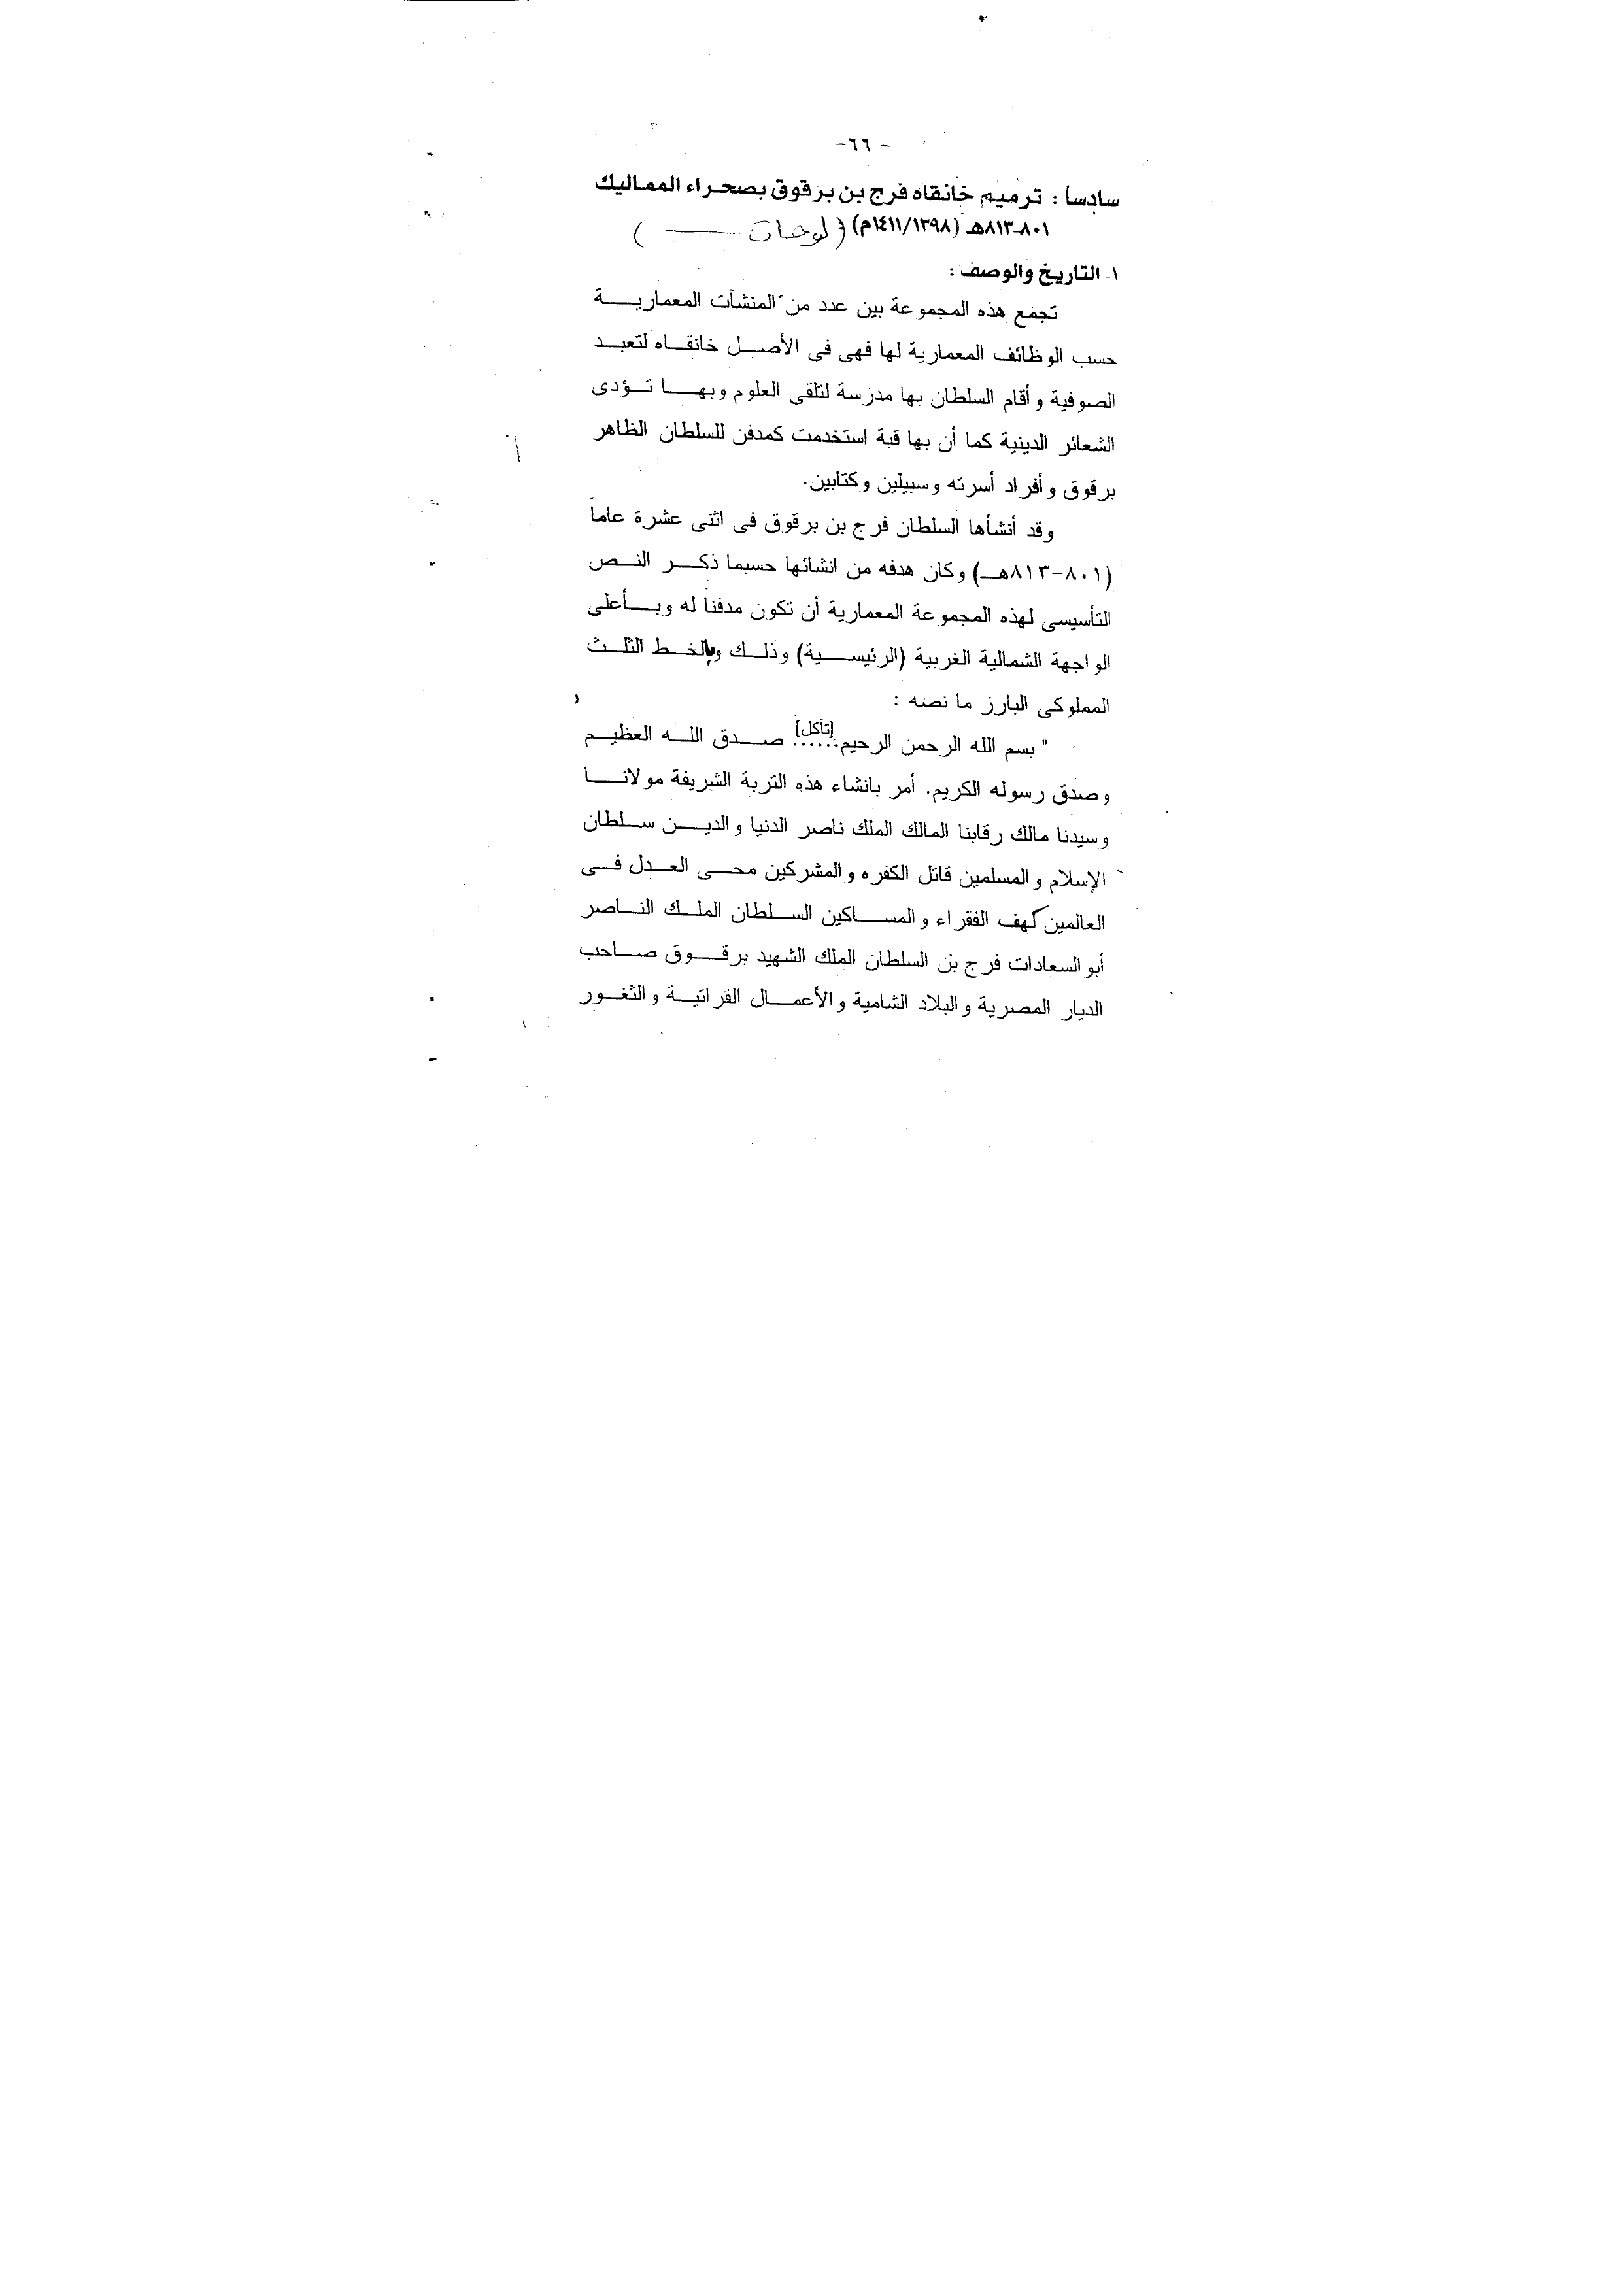 - ٦٦-
سادساً : ترميم خانقاه فرج بن برقوق بصحراء المماليك
٨٠١-٨١٣هـ (١٤١١/١٣٩٨م) (لوحات ——— )
١- التاريخ والوصف :
تجمع هذه المجموعة بين عدد من المنشآت المعماريـــة
حسب الوظائف المعمارية لها فهى فى الأصـل خانقـاه لتعبـد
الصوفية وأقام السلطان بها مدرسة لتلقى العلوم وبهـــا تـؤدى
الشعائر الدينية كما أن بها قبة استخدمت كمدفن للسلطان الظاهر
برقوق وأفراد أسرته وسبيلين وكتابين.
وقد أنشأها السلطان فرج بن برقوق فى اثنى عشرة عاماً
(٨٠١-٨١٣هـ) وكان هدفه من انشائها حسبما ذكـر النـص
التأسيسى لهذه المجموعة المعمارية أن تكون مدفناً له وبـأعلى
الواجهة الشمالية الغربية (الرئيســية) وذلـك وبالخـط الثلـث
المملوكى البارز ما نصه :
" بسم الله الرحمن الرحيم......[تآكل] صــدق اللـه العظيـم
وصدق رسوله الكريم. أمر بانشاء هذه التربة الشريفة مولانــا
وسيدنا مالك رقابنا المالك الملك ناصر الدنيا والديــن سـلطان
الإسلام والمسلمين قاتل الكفره والمشركين محـى العـدل فـى
العالمين كهف الفقراء والمســاكين السـلطان الملـك النـاصر
أبو السعادات فرج بن السلطان الملك الشهيد برقــوق صـاحب
الديار المصرية والبلاد الشامية والأعمــال الفراتيـة والثغـور